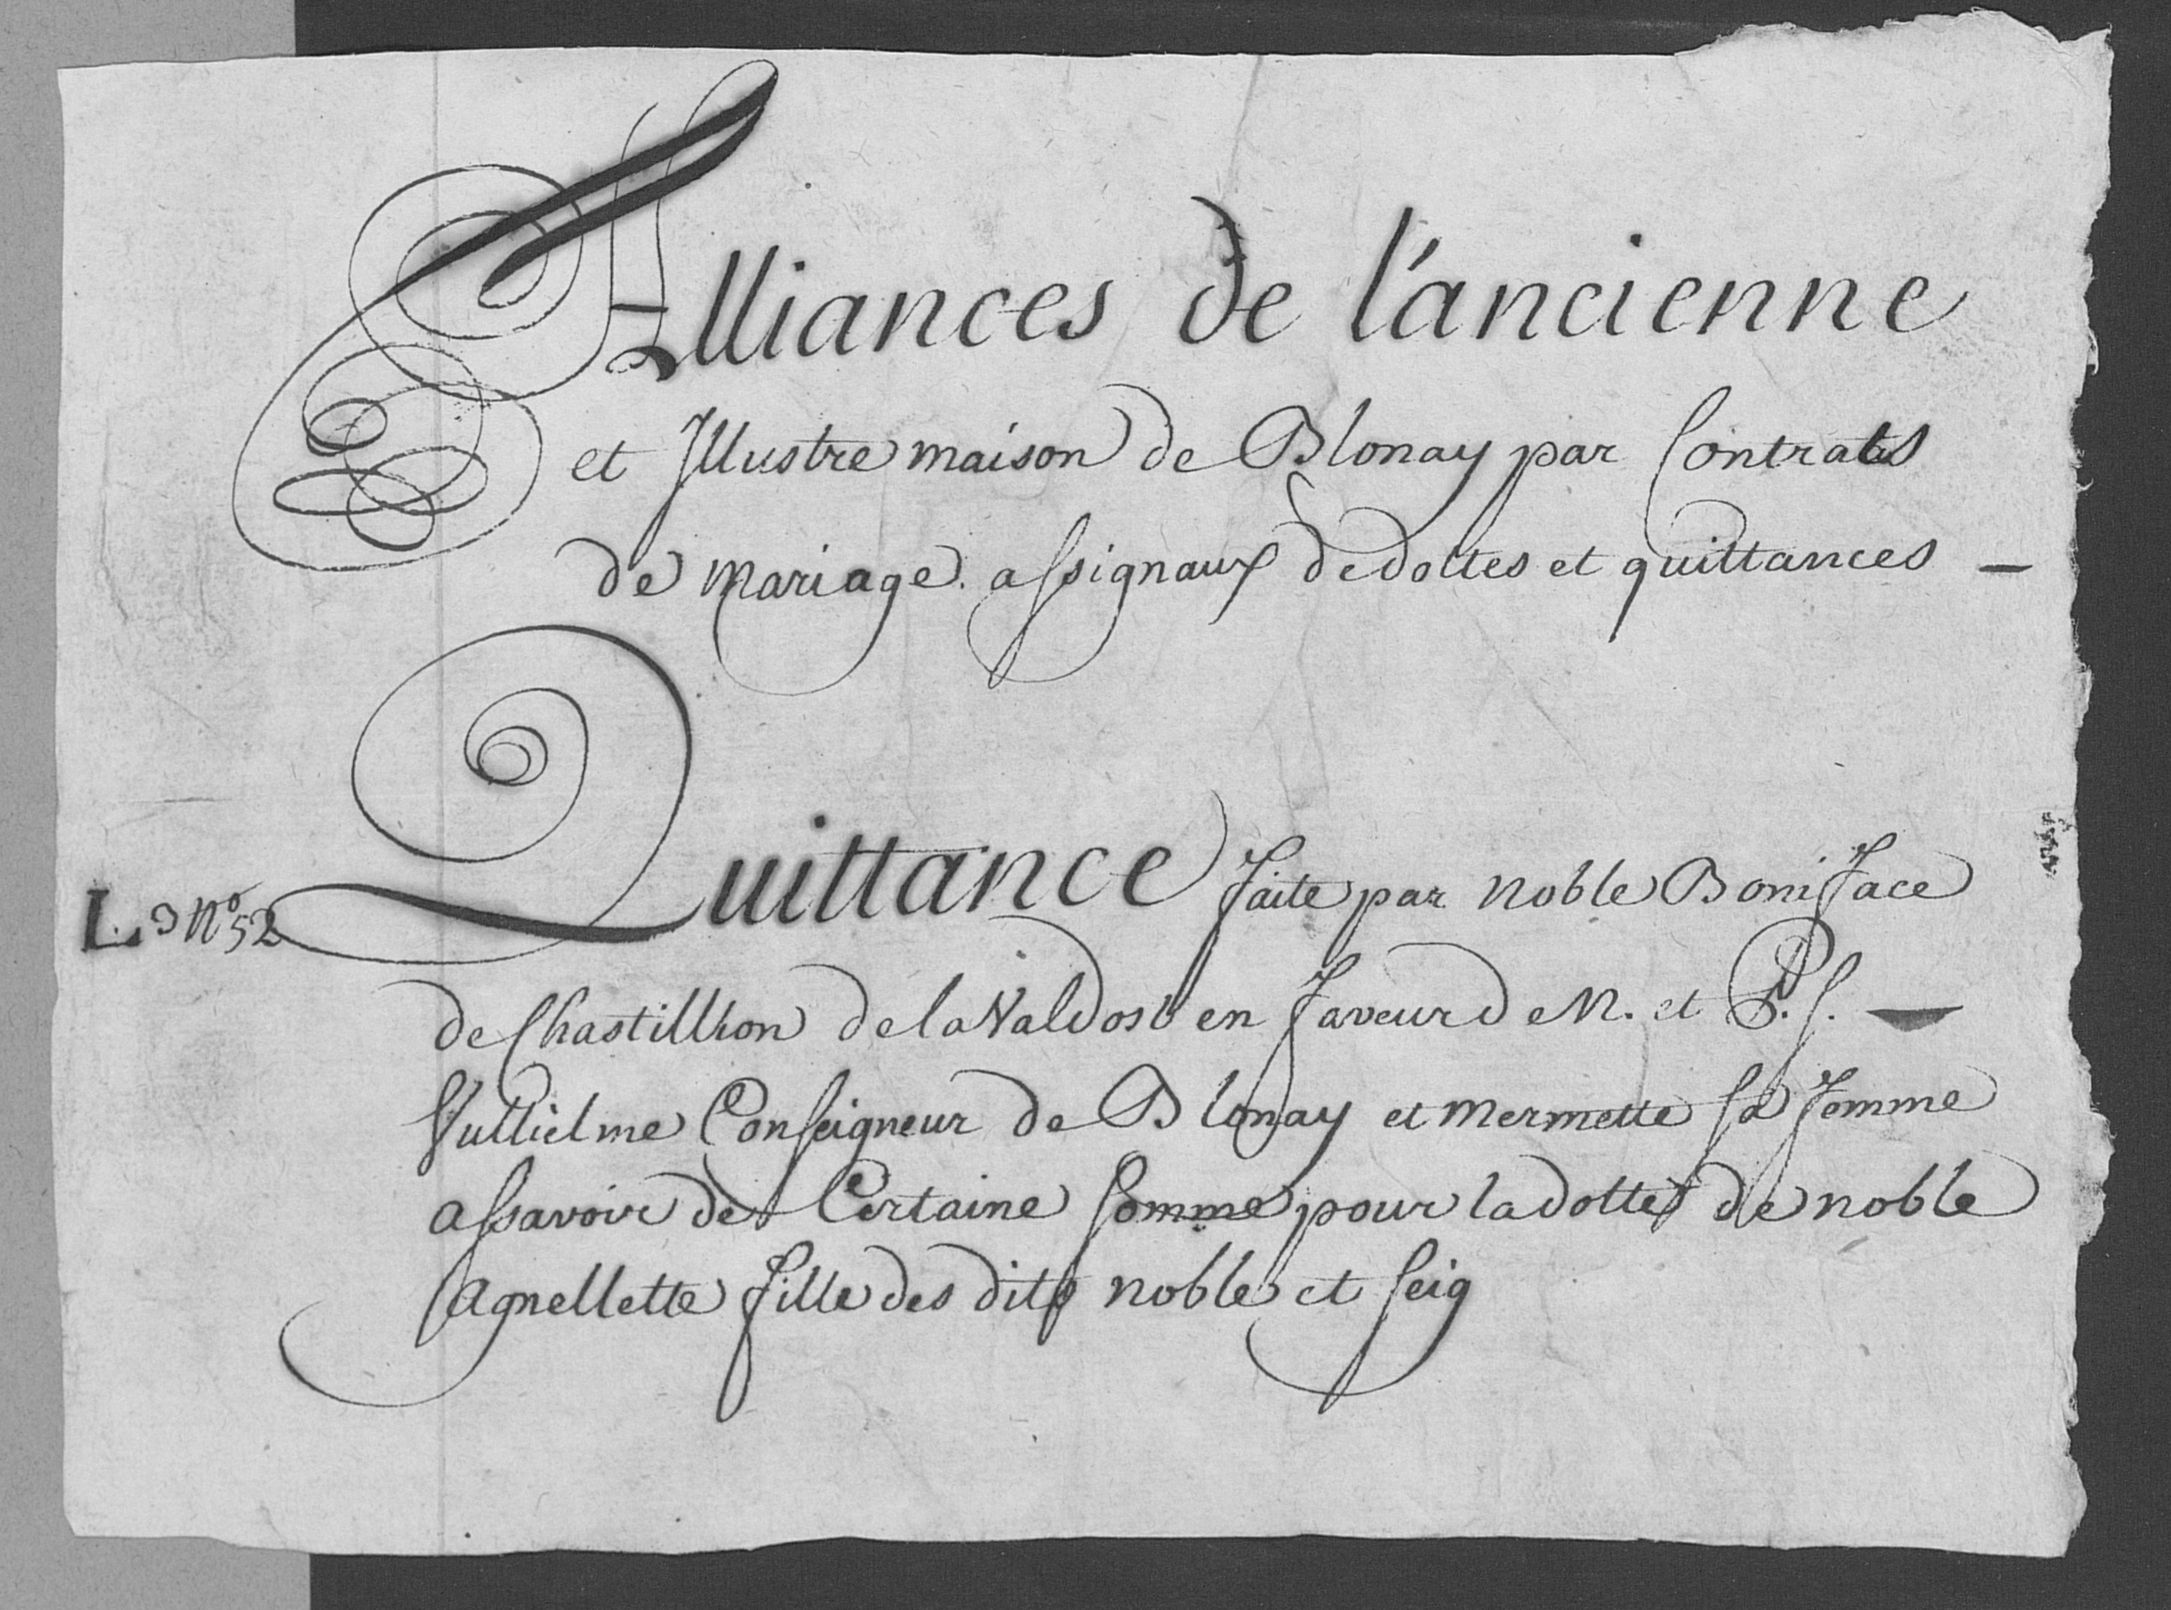 Alliances de l'ancienne
et Illustre maison de Blonay par Contrats
de mariage. assignaux de dottes et quittances —
L 3 N° 52 Quittance faite par noble Boniface
de Chastillion de la Valdost en faveur de N. et P. S. —
Vullielme Conseigneur de Blonay et mermette sa femme
assavoir de Certaine somme pour la dotte de noble
agnellette fille des dits noble et seig